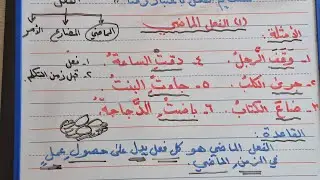 الفعل
الماضي المضارع الأمر
(١) الفعل الماضي
الأمثلة:
١- وَقَفَ الرجلُ ٤- دقتِ الساعةُ
٢- جرى الكلبُ ٥- جاءتِ البنتُ
٣- ضاعَ الكتابُ ٦- باضتِ الدجاجةُ
١- فعل
٢- قبل زمن التكلم
القاعدة:
الفعل الماضي هو كل فعل يدل على حصولِ عملٍ
في الزمن الماضي.